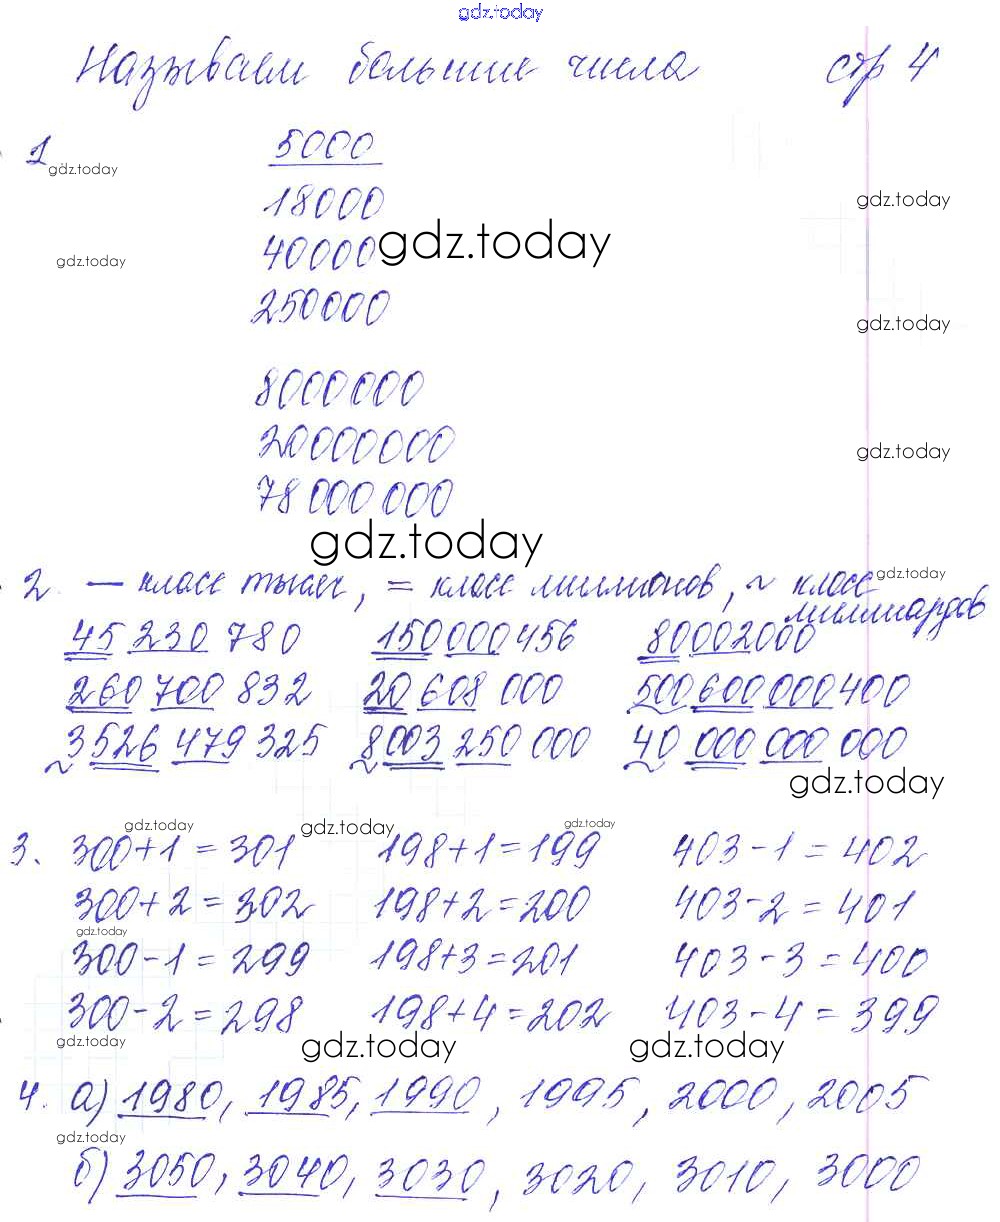 gdz.today
Называем большие числа стр 4
1 5000
gdz.today
18000
gdz.today
40000 gdz.today
gdz.today
250000
gdz.today
8000000
20000000
gdz.today
78 000 000
gdz.today
2. — класс тысяч, = класс миллионов, ~ класс миллиардов
gdz.today
45 230 780 150 000 456 80002000
260 700 832 20 608 000 500 600 000 400
3 526 479 325 8003 250 000 40 000 000 000
gdz.today
gdz.today gdz.today gdz.today
3. 300+1=301 198+1=199 403-1=402
300+2=302 198+2=200 403-2=401
gdz.today
300-1=299 198+3=201 403-3=400
300-2=298 198+4=202 403-4=399
gdz.today gdz.today gdz.today
4. а) 1980, 1985, 1990, 1995, 2000, 2005
gdz.today
б) 3050, 3040, 3030, 3020, 3010, 3000